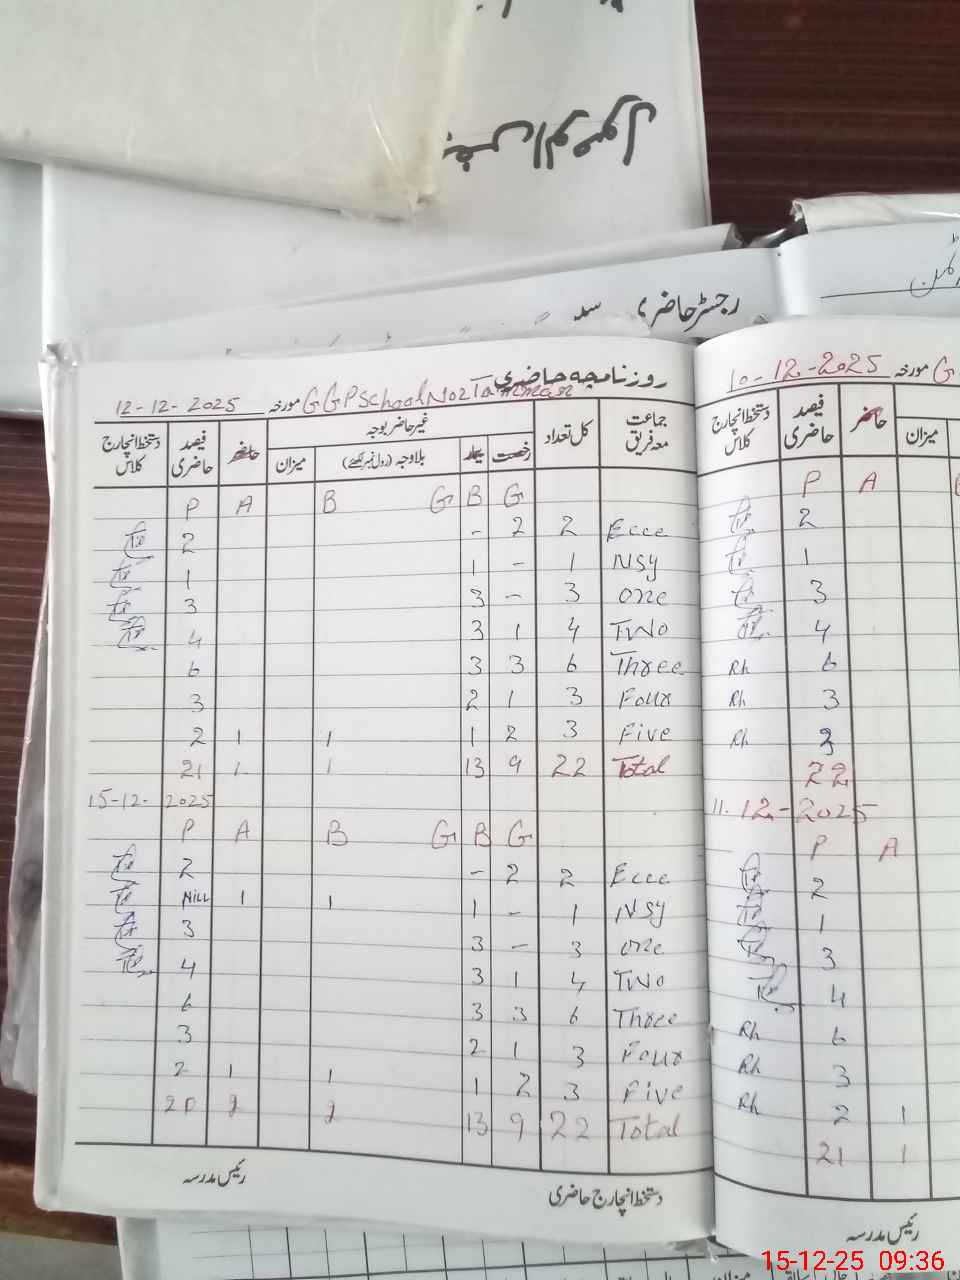 بغرض الوصول
رجسٹر حاضری
روزنامچہ حاضری
12-12-2025 مورخہ GGPSchool No2
جماعت معہ فریق کل تعداد غیر حاضر بوجہ حاضر فیصد حاضری دستخط انچارج کلاس
رخصت بیمار بلاوجہ (رول نمبر لکھئے) میزان
P A B G B G
2 - 2 2 Ecce
1 1 - 1 NSy
3 3 - 3 one
4 3 1 4 Two
6 3 3 6 Three
3 2 1 3 Four
2 1 1 1 2 3 Five
21 1 1 13 9 22 Total
15-12-2025
P A B G B G
2 - 2 2 Ecce
Nill 1 1 1 - 1 NSy
3 3 - 3 one
4 3 1 4 Two
6 3 3 6 Three
3 2 1 3 Four
2 1 1 1 2 3 Five
20 2 2 13 9 22 Total
رئیس مدرسہ
دستخط انچارج حاضری
10-12-2025 مورخہ G
دستخط انچارج کلاس فیصد حاضری حاضر میزان
P A
2
1
3
4
Rh 6
Rh 3
Rh 3
22
11-12-2025
P A
2
1
3
4
Rh 6
Rh 3
Rh 2 1
21 1
رئیس مدرسہ
15-12-25 09:36